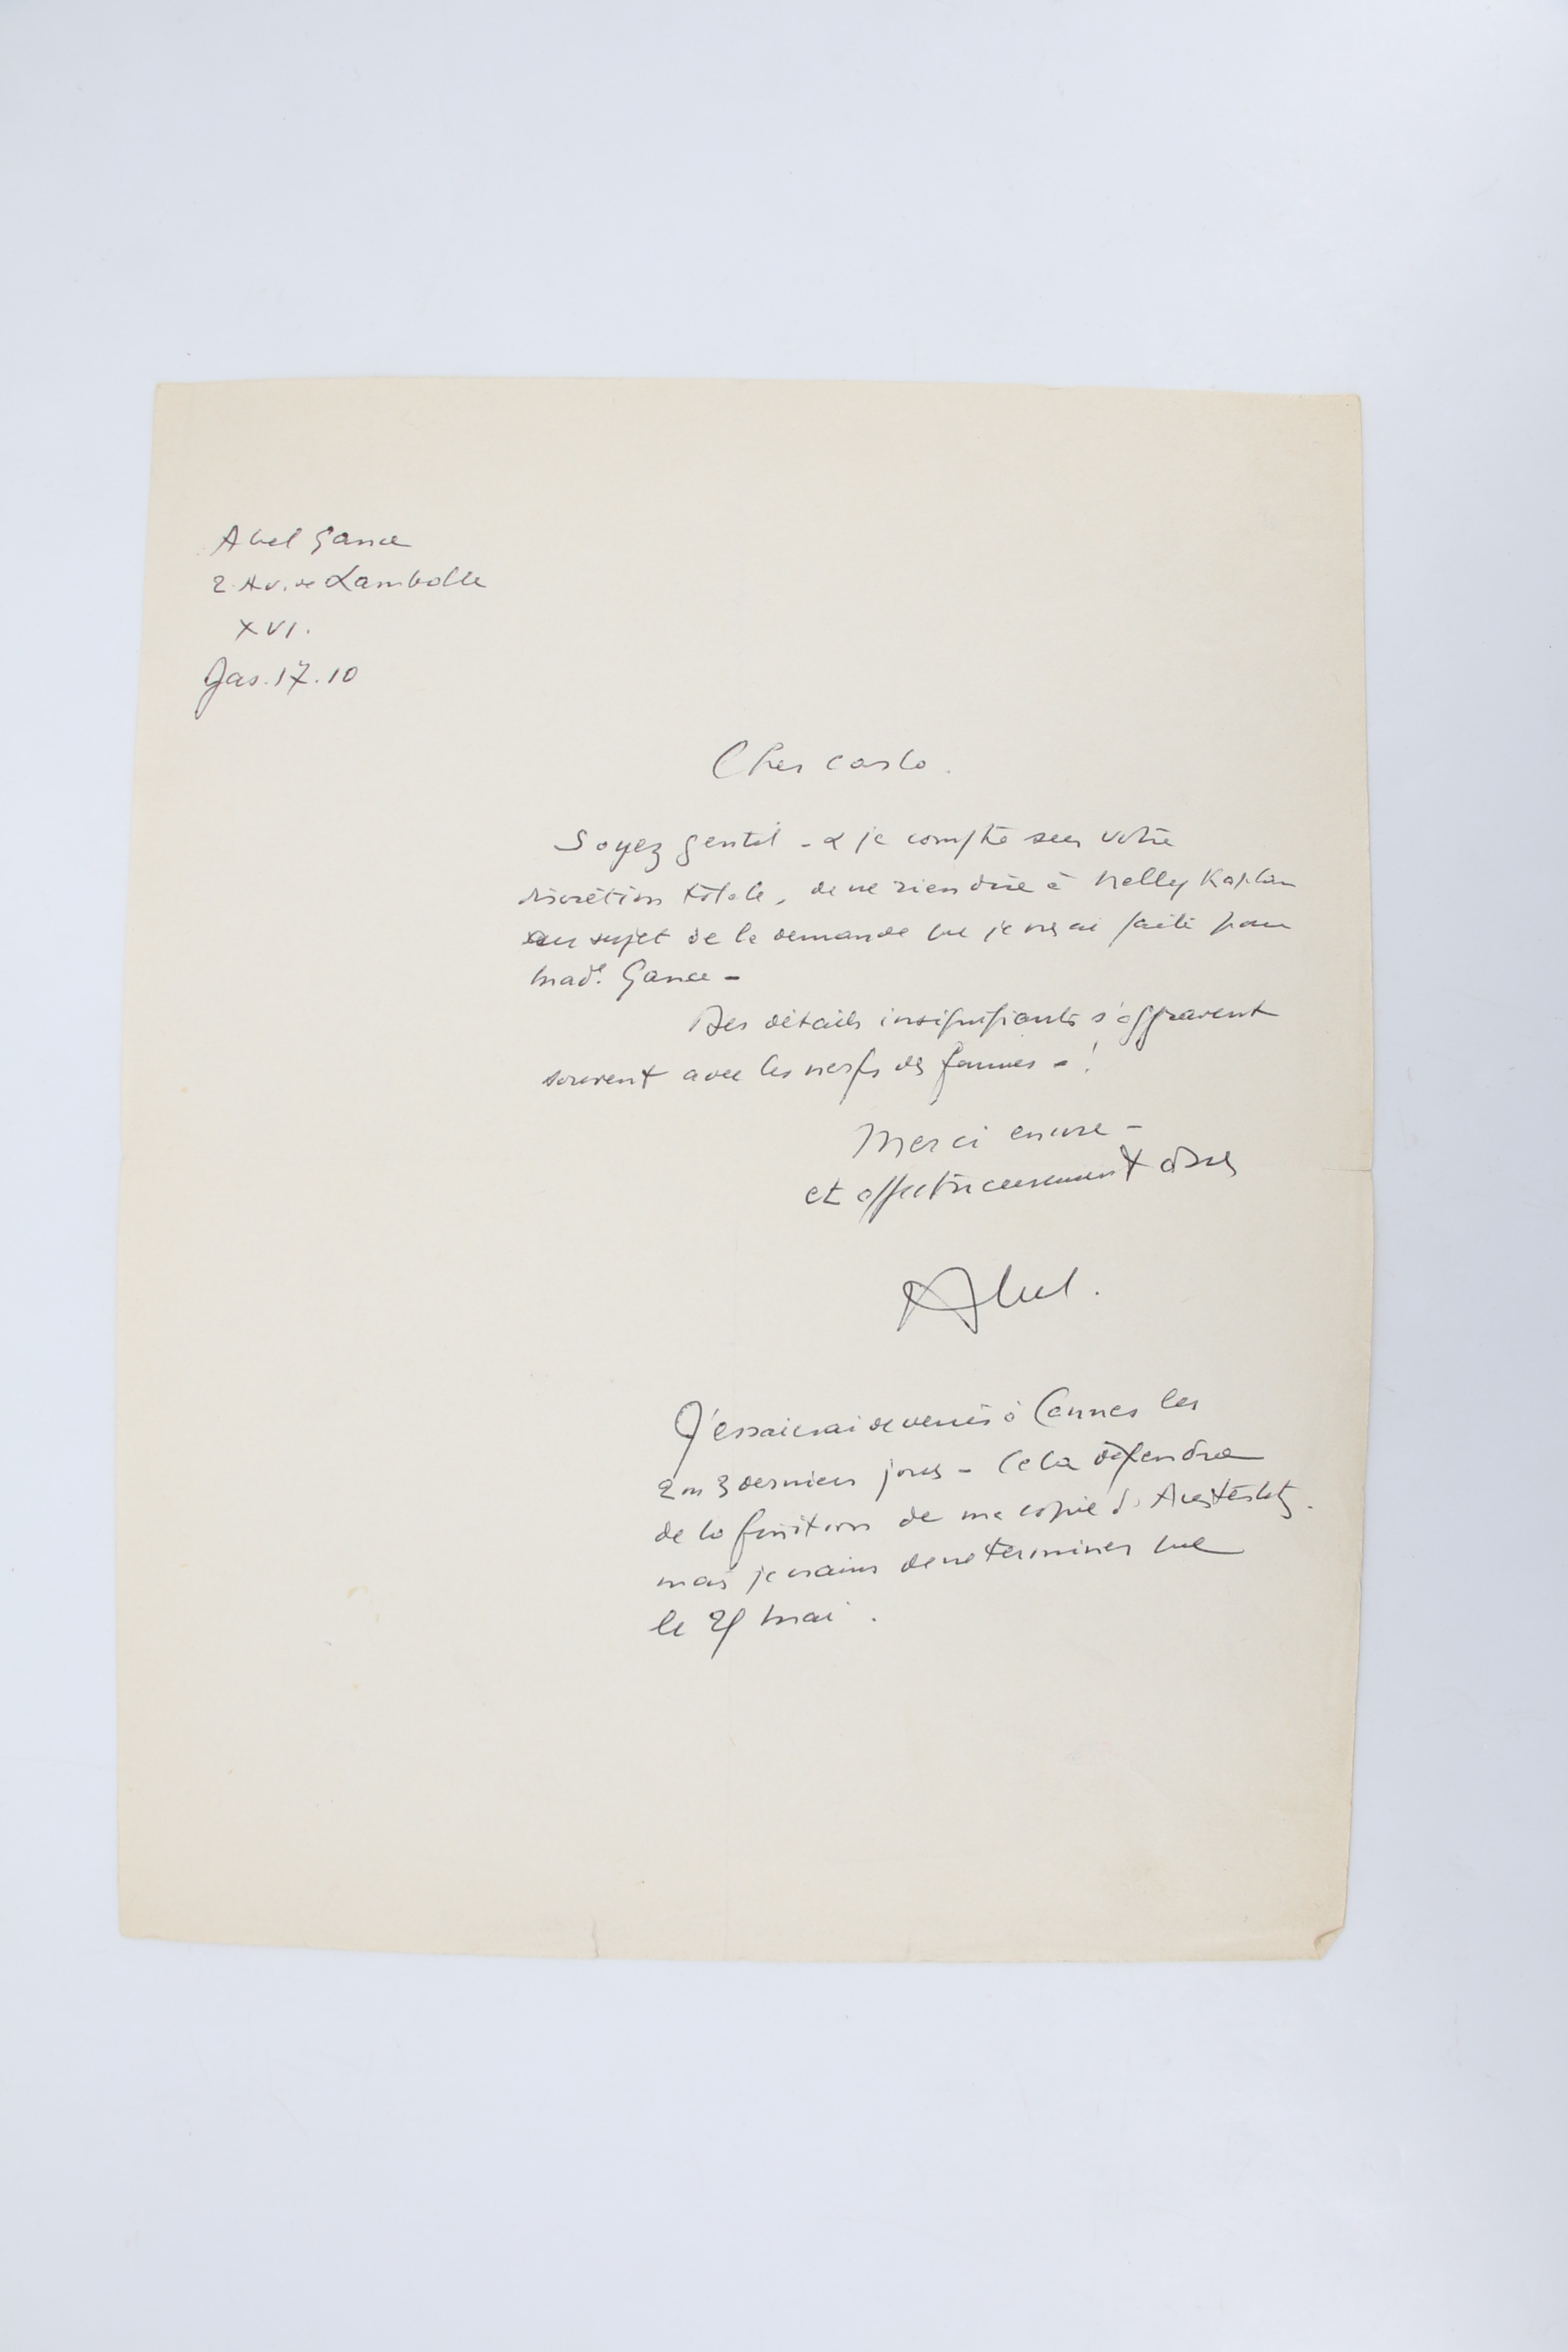 Abel Gance
2. Av. de Lamballe
XVI.
Jas. 17.10
Cher Carlo.
Soyez gentil - & je compte sur votre
discrétion totale, de ne rien dire à Nelly Kaplan
au sujet de la demande que je vs ai faite pour
Made. Gance -
Des détails insignifiants s'aggravent
souvent avec les nerfs des femmes - !
Merci encore -
et affectueusement à vs
Abel.
J'essaierai de venir à Cannes les
2 ou 3 derniers jours - Cela dépendra
de la finition de ma copie d'Austerlitz.
mais je crains de ne terminer que
le mai.